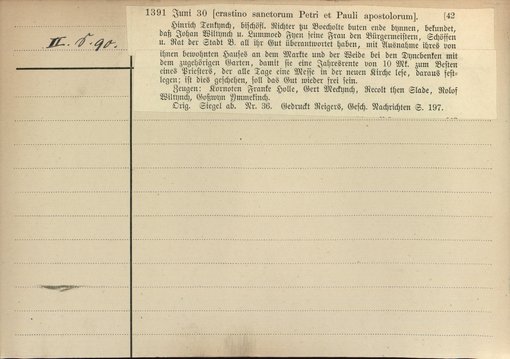 II. 5. 90.
1391 Juni 30 [crastino sanctorum Petri et Pauli apostolorum]. [42
Hinrich Tenkynch, bischöfl. Richter zu Boecholte buten ende bynnen, bekundet,
daß Johan Wiltynch u. Lummoed Fyen seine Frau den Bürgermeistern, Schöffen
u. Rat der Stadt B. all ihr Gut überantwortet haben, mit Ausnahme ihres von
ihnen bewohnten Hauses an dem Markte und der Weide bei den Dynchenken mit
dem zugehörigen Garten, damit sie eine Jahresrente von 10 Mk. zum Besten
eines Priesters, der alle Tage eine Messe in der neuen Kirche lese, daraus fest-
legen; ist dies geschehen, soll das Gut wieder frei sein.
Zeugen: Kornoten Franke Holle, Gert Meckynch, Recolt then Slade, Rolof
Wiltynch, Goßwyn Ymmekinch.
Orig. Siegel ab. Nr. 36. Gedruckt Reigers, Gesch. Nachrichten S. 197.